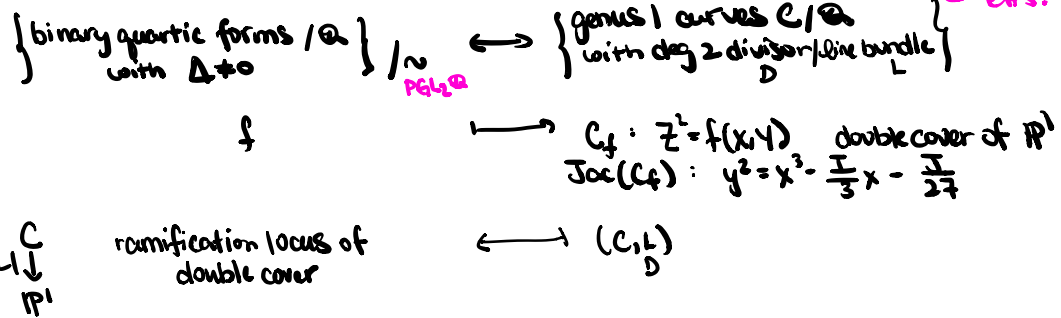 {binary quartic forms /Q with Δ≠0} /~ PGL₂Q ⟷ {genus 1 curves C/Q with deg 2 divisor/line bundle D L}
f ⟼ C_f : Z² = f(X,Y) double cover of P¹
Jac(C_f) : y² = x³ - I/3 x - J/27
C ↓ P¹ ramification locus of double cover ⟻ (C, L) D